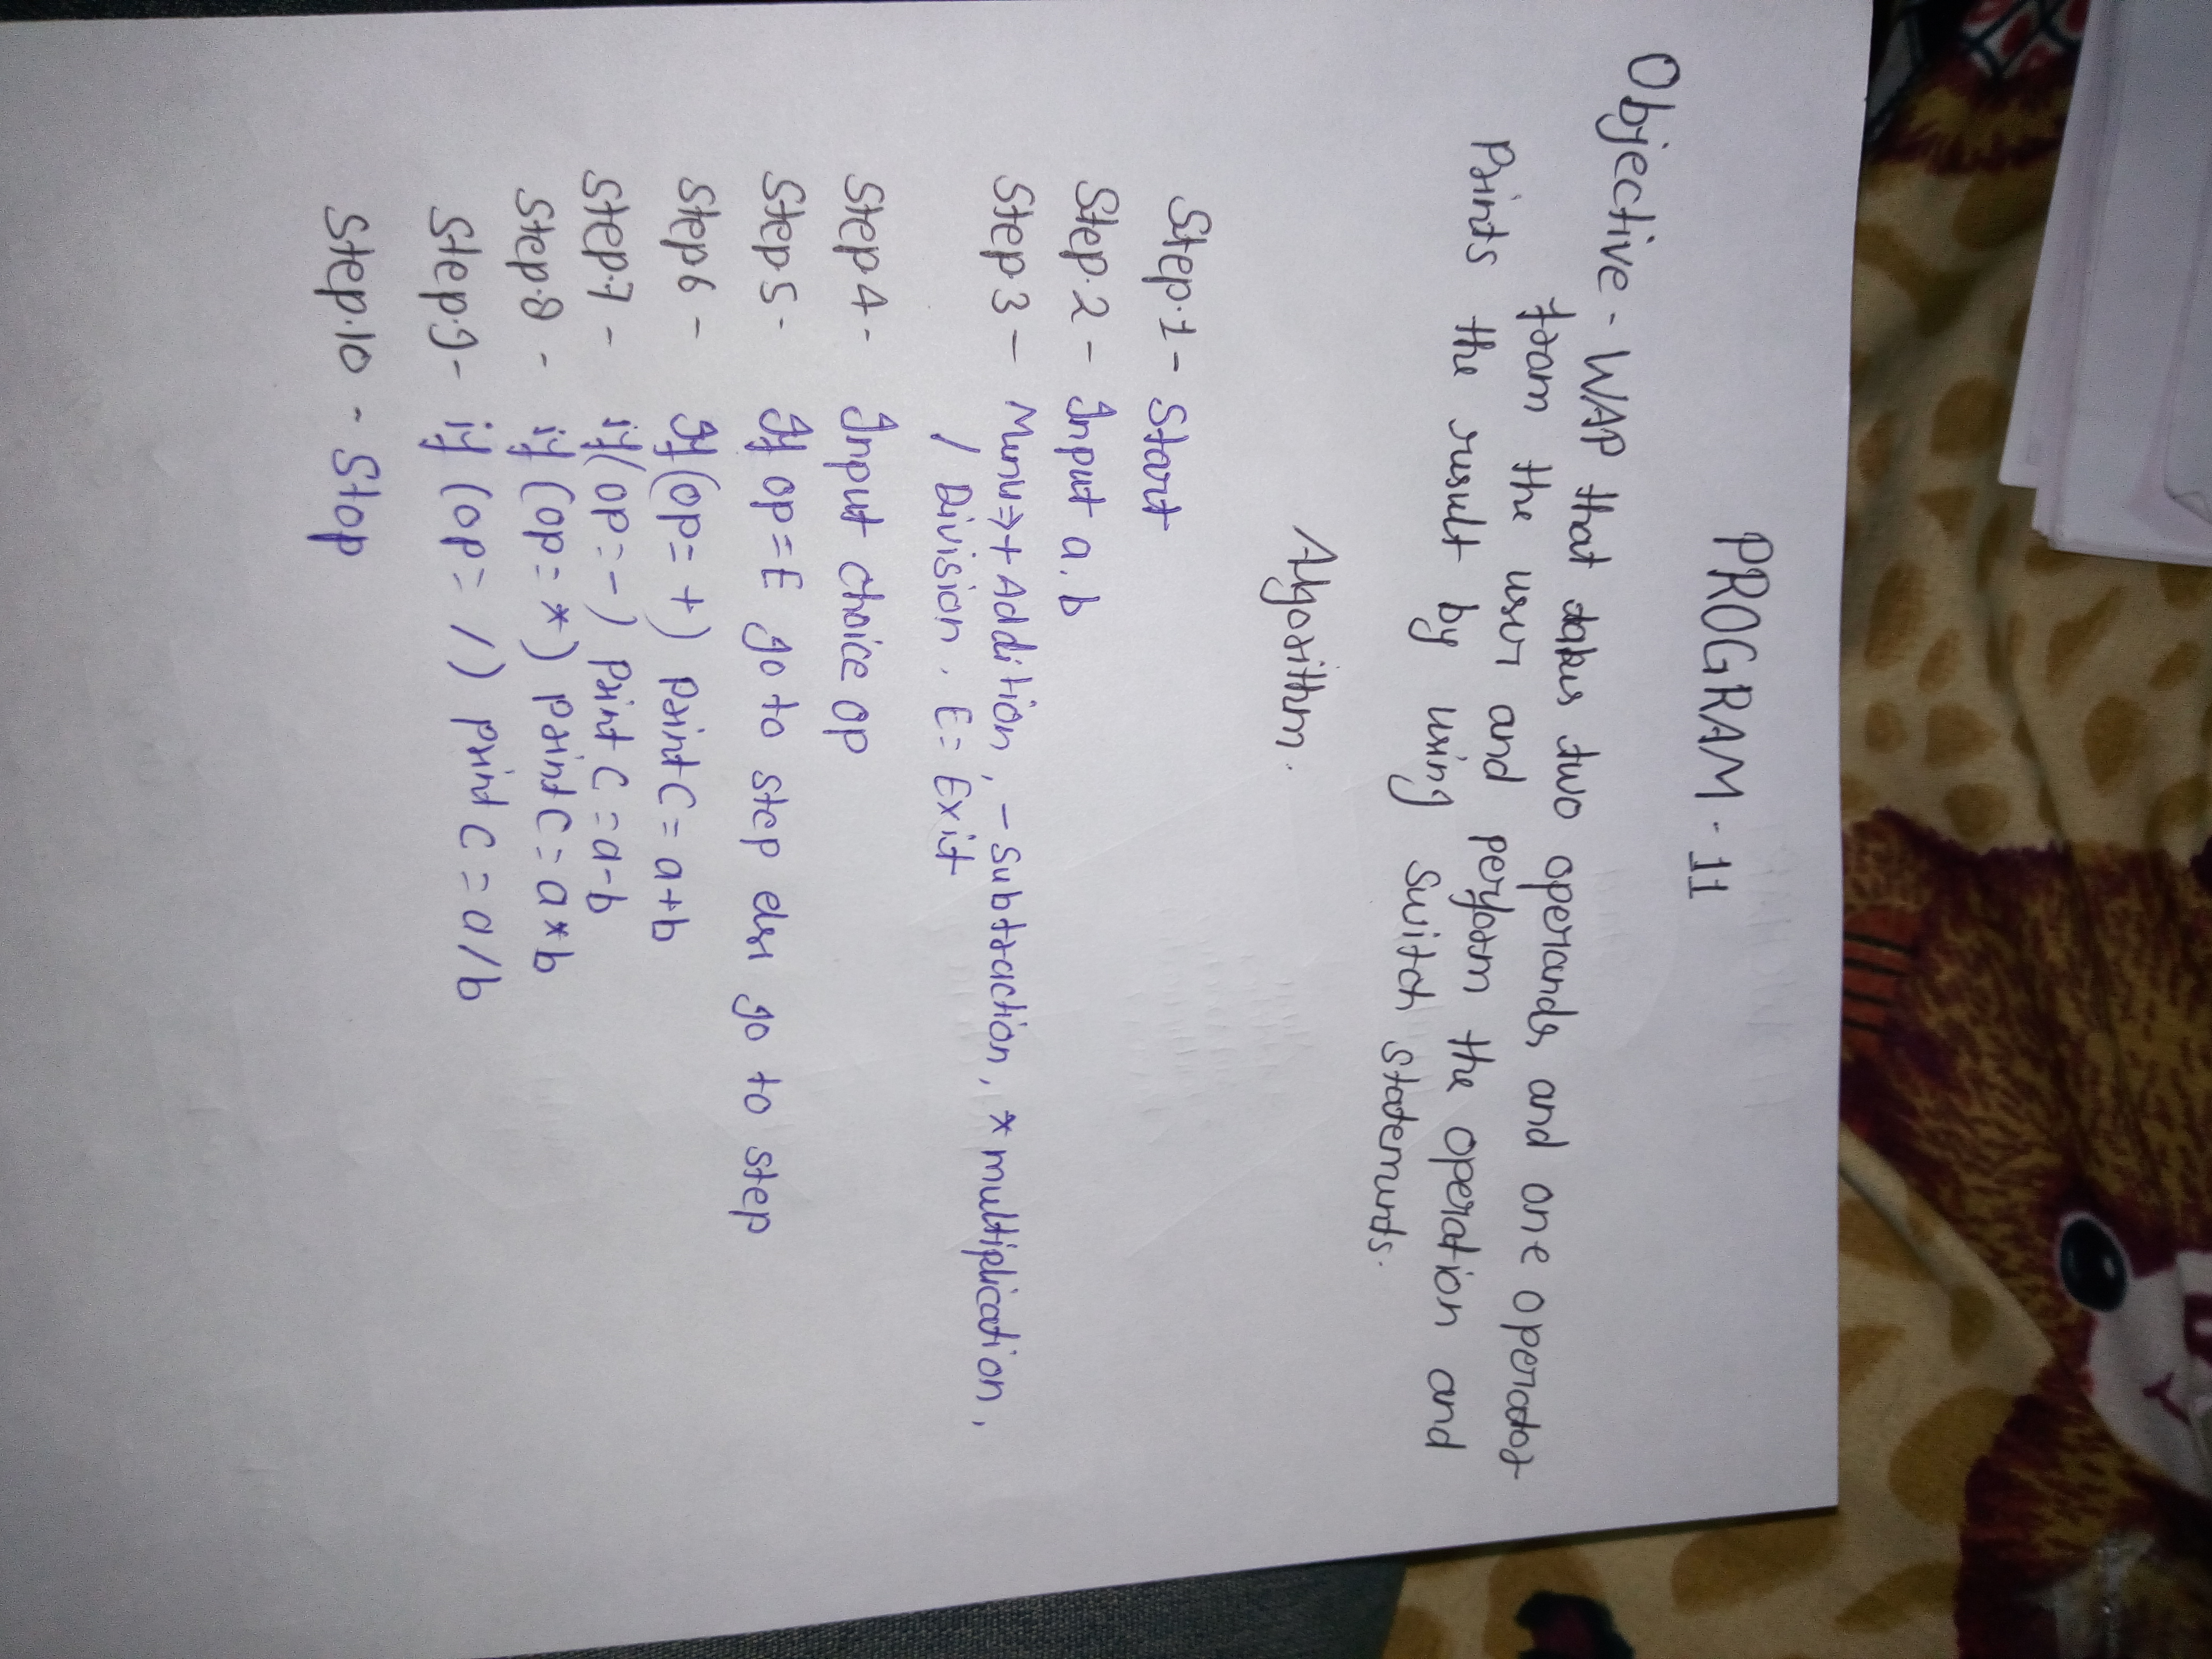 PROGRAM-11
Objective - WAP that takes two operands and one operator
from the user and perform the operation and
Prints the result by using Switch statements.
Algorithm.
Step.1 - Start
Step.2 - Input a.b
Step.3 - Menu⇒+ Addition, - Subtraction, * multiplication,
/ Division. E= Exit
Step.4 - Input choice op
Step.5 - If op=E go to step else go to step
Step.6 - If(op= +) print C= a+b
Step.7 - if(op= -) print C = a-b
Step.8 - if (op= *) print C= a*b
Step.9 - if (op= /) print C = a/b
Step.10 - Stop